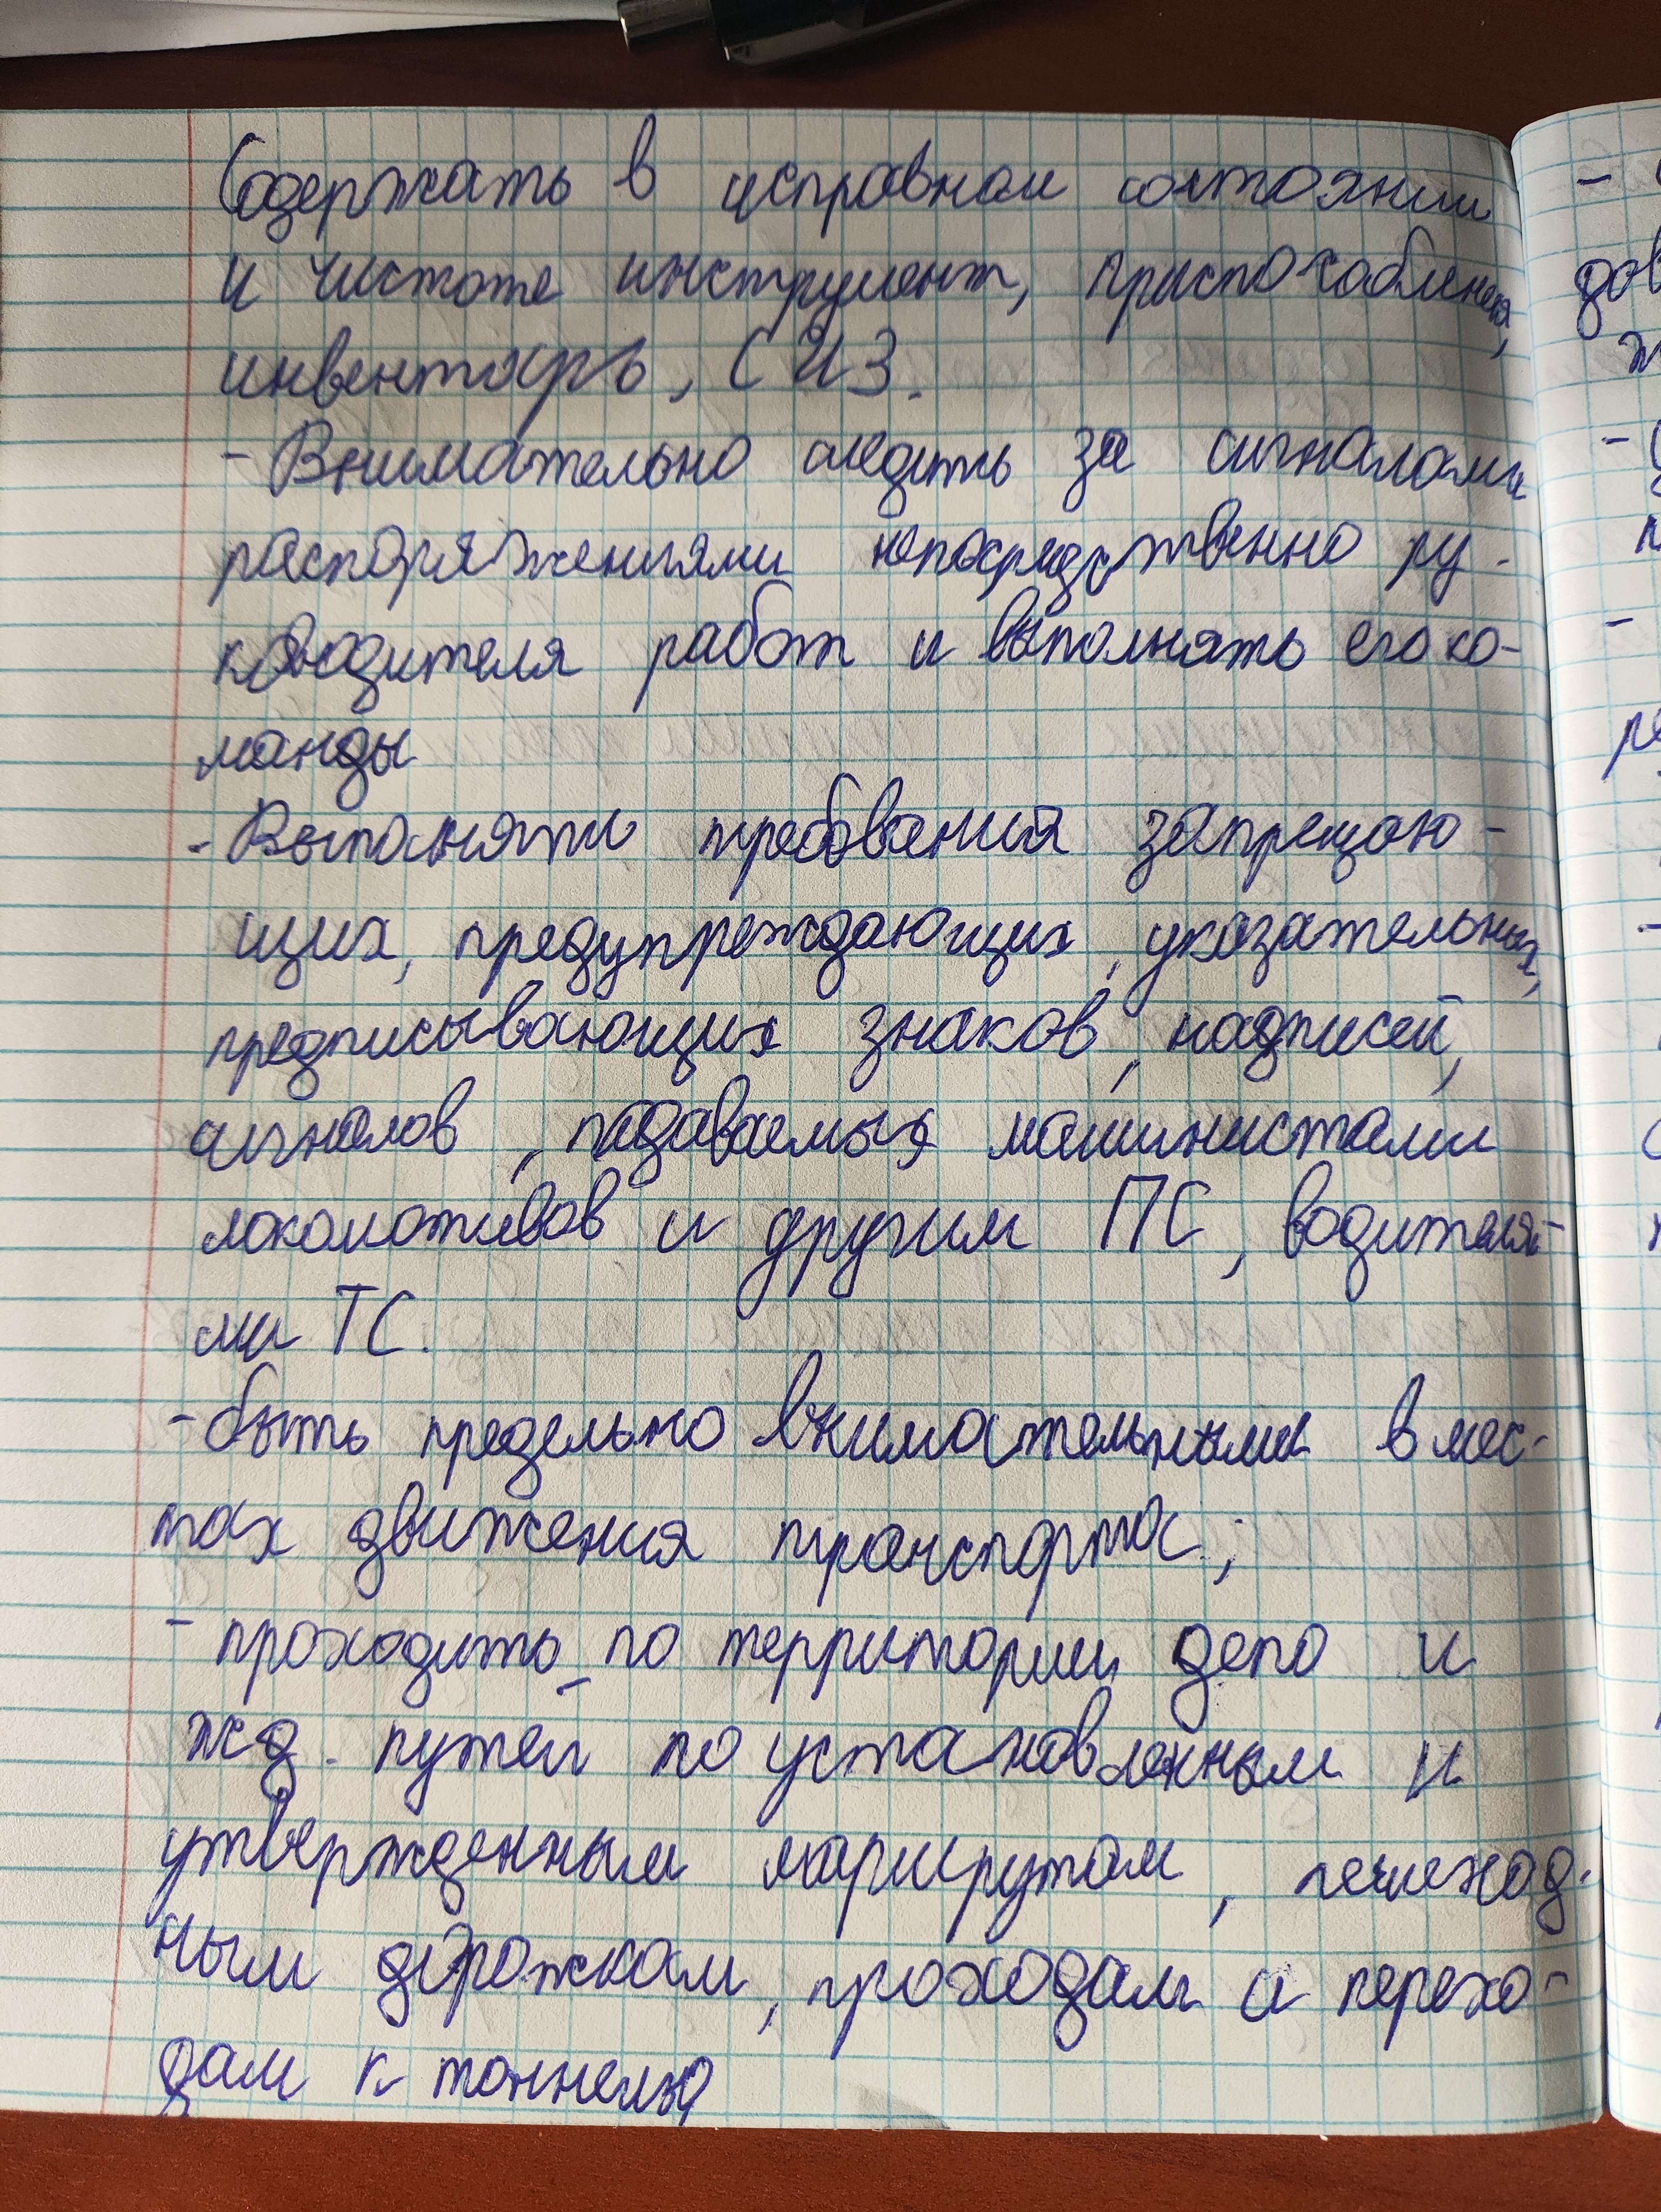 Содержать в исправном состоянии
и чистоте инструмент, приспособления,
инвентарь, СИЗ.
- Внимательно следить за сигналами
распоряжениями непосредственно ру-
ководителя работ и выполнять его ко-
манды
- Выполнять требования запрещаю-
щих, предупреждающих, указательных,
предписывающих знаков, надписей,
сигналов, подаваемых машинистами
локомотивов и другим ПС, водителя-
ми ТС.
- быть предельно внимательными в мес-
тах движения транспорта;
- проходить по территории депо и
жд. путей по установленным и
утвержденным маршрутам, пешеход-
ным дорожкам, проходам и перехо-
дам к тоннелю